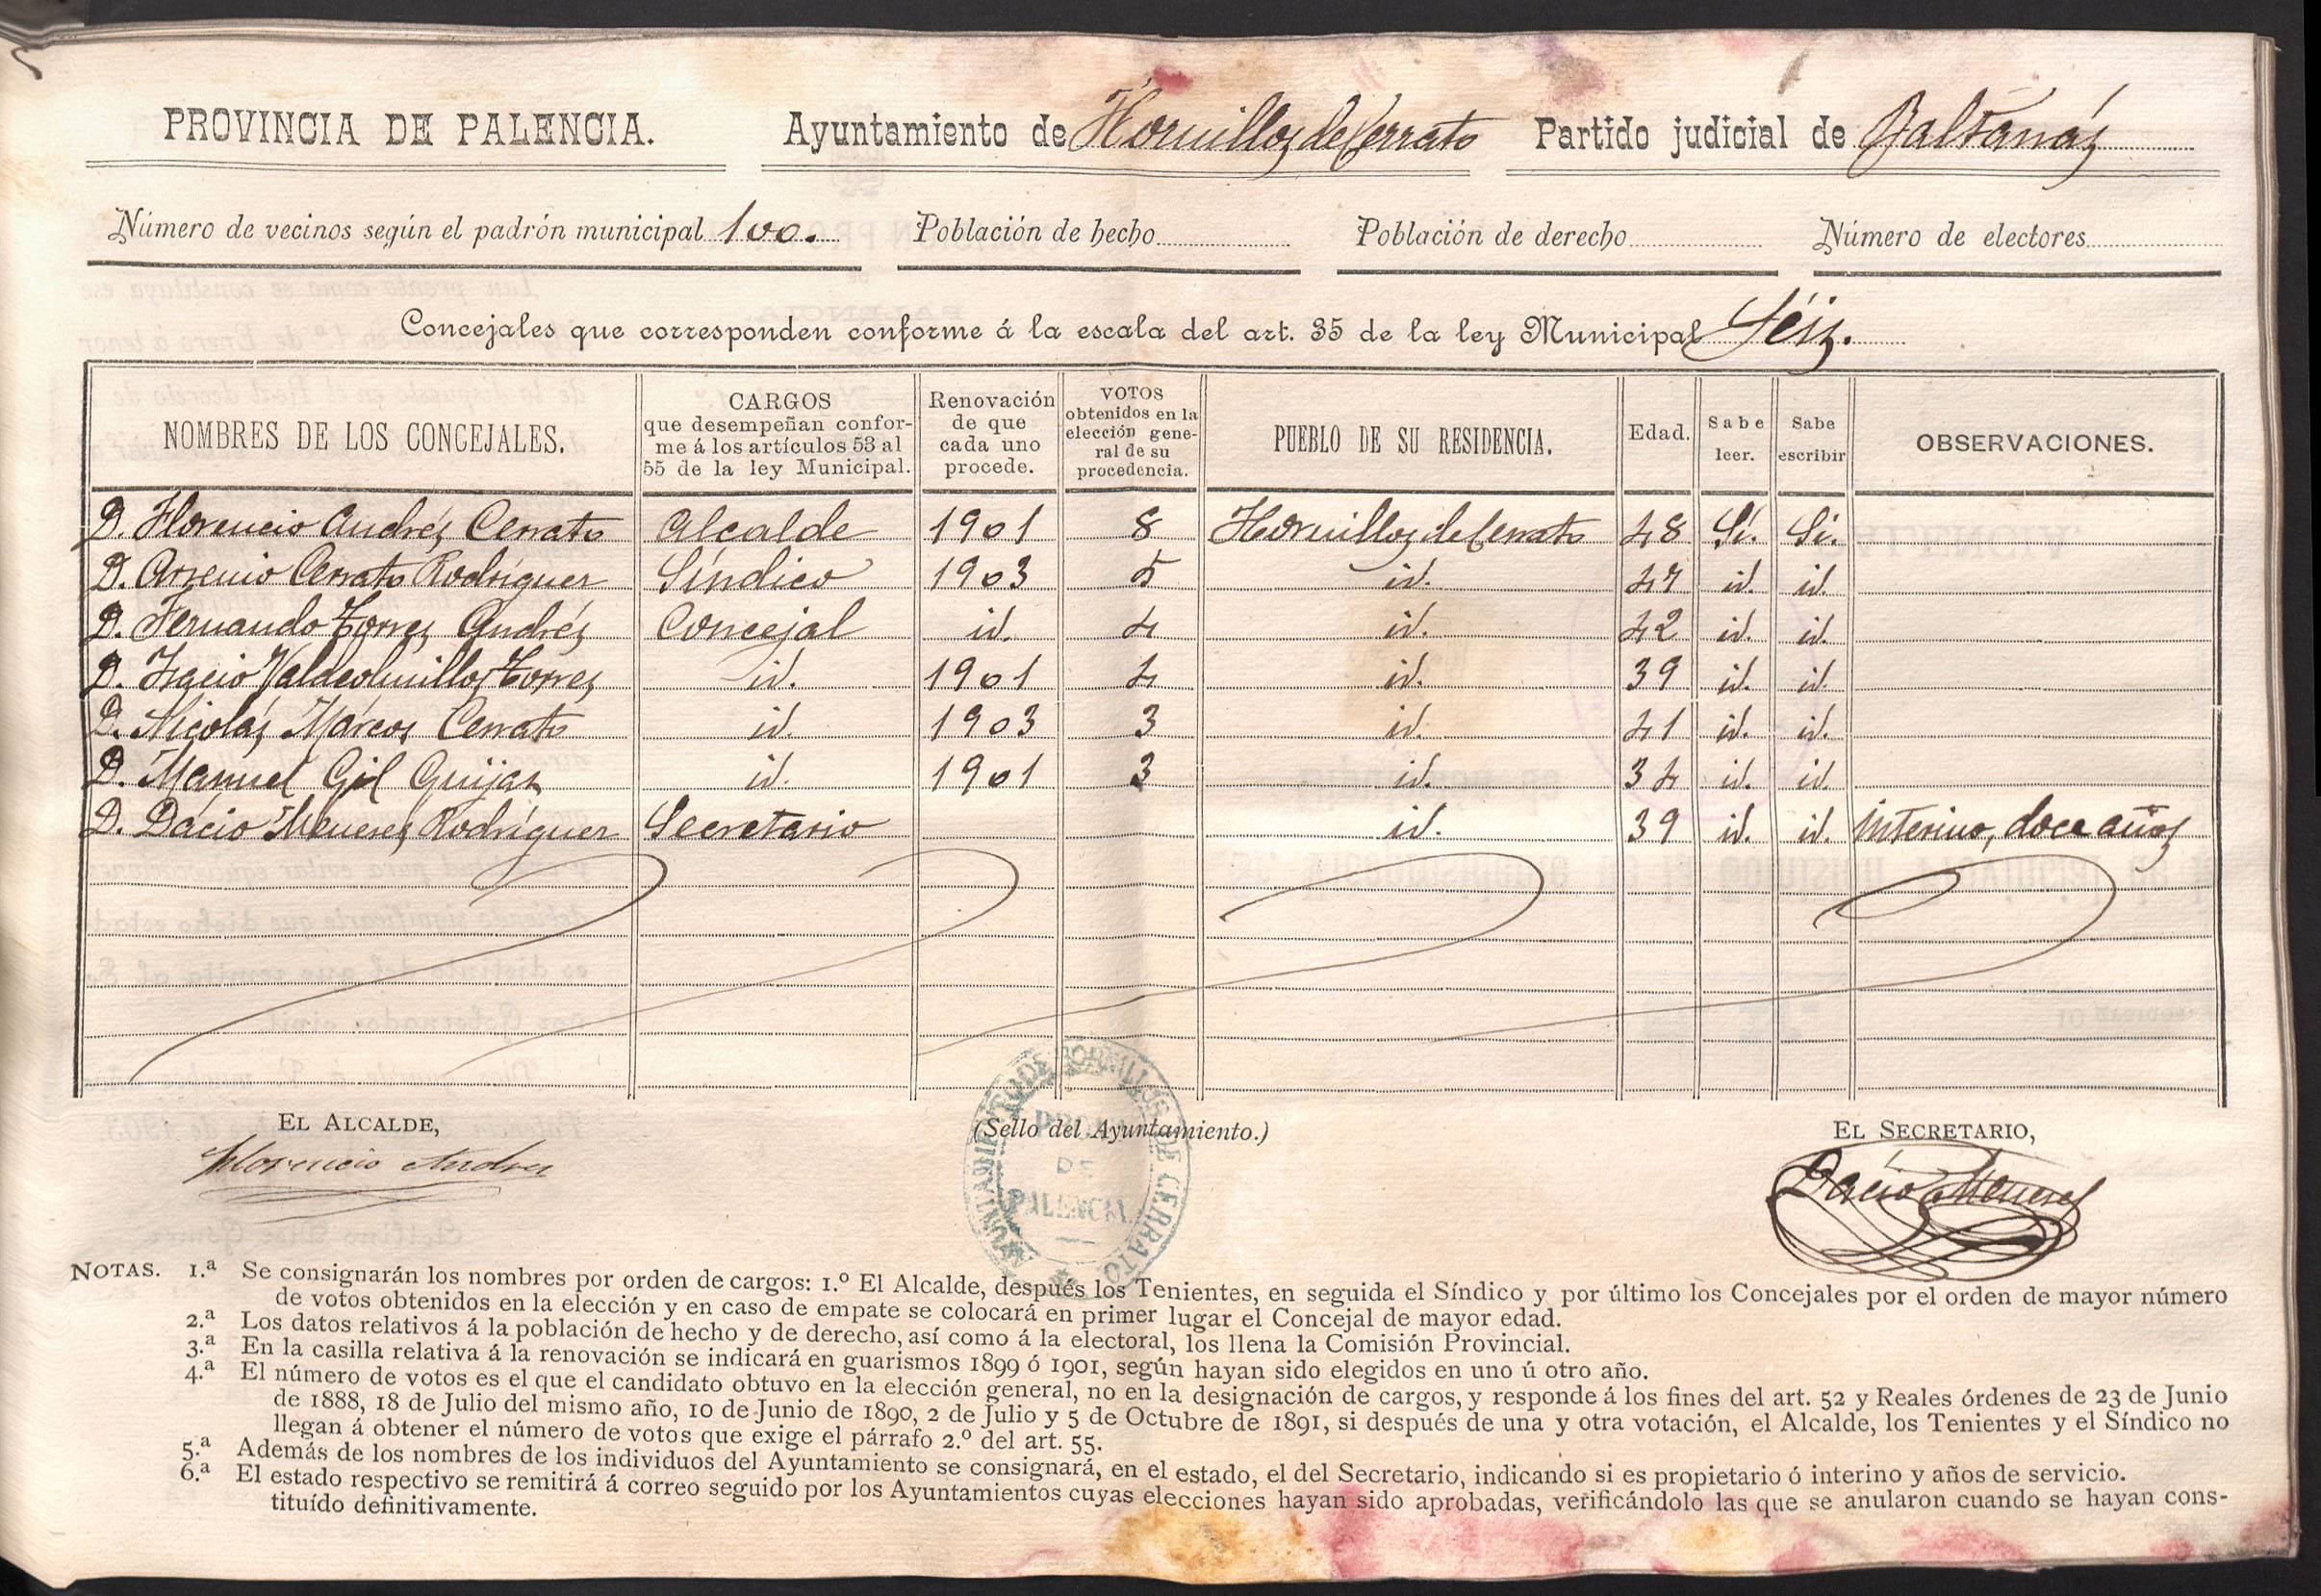 PROVINCIA DE PALENCIA. Ayuntamiento de Hornillos de Cerrato Partido judicial de Baltanás
Número de vecinos según el padrón municipal 100. Población de hecho Población de derecho Número de electores
Concejales que corresponden conforme á la escala del art. 35 de la ley Municipal Séis.
NOMBRES DE LOS CONCEJALES. CARGOS que desempeñan conforme á los artículos 53 al 55 de la ley Municipal. Renovación de que cada uno procede. VOTOS obtenidos en la elección general de su procedencia. PUEBLO DE SU RESIDENCIA. Edad. Sabe leer. Sabe escribir OBSERVACIONES.
D. Florencio Andrés Cerrato Alcalde 1901 8 Hornillos de Cerrato 48 Sí. Sí.
D. Arsenio Cerrato Rodríguez Síndico 1903 5 id. 47 id. id.
D. Fernando Torres Andrés Concejal id. 4 id. 42 id. id.
D. Valdeolmillos Torres id. 1901 4 id. 39 id. id.
D. Nicolás Márcos Cerrato id. 1903 3 id. 41 id. id.
D. Manuel Gil Guijas id. 1901 3 id. 34 id. id.
D. Dácio Meneses Rodríguez Secretario id. 39 id. id. interino, doce años
EL ALCALDE, (Sello del Ayuntamiento.) EL SECRETARIO,
Florencio Andres Dácio Meneses
AYUNTAMIENTO DE HORNILLOS DE CERRATO
PROVª
DE
PALENCIA
NOTAS. 1.ª Se consignarán los nombres por orden de cargos: 1.º El Alcalde, después los Tenientes, en seguida el Síndico y por último los Concejales por el orden de mayor número
de votos obtenidos en la elección y en caso de empate se colocará en primer lugar el Concejal de mayor edad.
2.ª Los datos relativos á la población de hecho y de derecho, así como á la electoral, los llena la Comisión Provincial.
3.ª En la casilla relativa á la renovación se indicará en guarismos 1899 ó 1901, según hayan sido elegidos en uno ú otro año.
4.ª El número de votos es el que el candidato obtuvo en la elección general, no en la designación de cargos, y responde á los fines del art. 52 y Reales órdenes de 23 de Junio
de 1888, 18 de Julio del mismo año, 10 de Junio de 1890, 2 de Julio y 5 de Octubre de 1891, si después de una y otra votación, el Alcalde, los Tenientes y el Síndico no
llegan á obtener el número de votos que exige el párrafo 2.º del art. 55.
5.ª Además de los nombres de los individuos del Ayuntamiento se consignará, en el estado, el del Secretario, indicando si es propietario ó interino y años de servicio.
6.ª El estado respectivo se remitirá á correo seguido por los Ayuntamientos cuyas elecciones hayan sido aprobadas, verificándolo las que se anularon cuando se hayan cons-
tituído definitivamente.